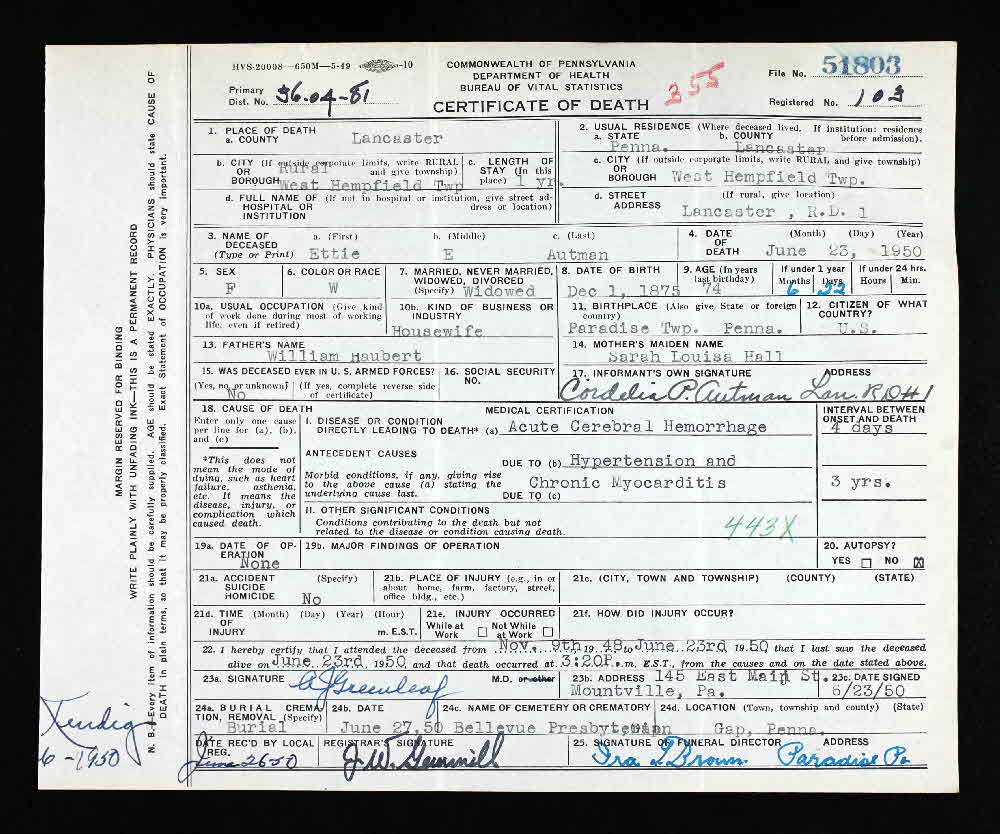 HVS-20008—650M—5-49 —10
COMMONWEALTH OF PENNSYLVANIA
DEPARTMENT OF HEALTH
BUREAU OF VITAL STATISTICS
CERTIFICATE OF DEATH
355
File No. 51803
Primary Dist. No. 36-04-81
Registered No. 103
1. PLACE OF DEATH
a. COUNTY Lancaster
2. USUAL RESIDENCE (Where deceased lived. If institution: residence before admission).
a. STATE Penna. b. COUNTY Lancaster
b. CITY (If outside corporate limits, write RURAL and give township) OR BOROUGH Rural West Hempfield Twp
c. LENGTH OF STAY (In this place) 1 yr.
c. CITY (If outside corporate limits, write RURAL and give township) OR BOROUGH West Hempfield Twp.
d. FULL NAME OF (If not in hospital or institution, give street address or location) HOSPITAL OR INSTITUTION
d. STREET ADDRESS (If rural, give location) Lancaster , R.D. 1
3. NAME OF DECEASED (Type or Print) a. (First) Ettie b. (Middle) E c. (Last) Autman
4. DATE OF DEATH (Month) (Day) (Year) June 23, 1950
5. SEX F
6. COLOR OR RACE W
7. MARRIED, NEVER MARRIED, WIDOWED, DIVORCED (Specify) Widowed
8. DATE OF BIRTH Dec 1, 1875
9. AGE (In years last birthday) 74
If under 1 year Months 6 Days 22
If under 24 hrs. Hours Min.
10a. USUAL OCCUPATION (Give kind of work done during most of working life, even if retired)
10b. KIND OF BUSINESS OR INDUSTRY
Housewife
11. BIRTHPLACE (Also give State or foreign country) Paradise Twp. Penna.
12. CITIZEN OF WHAT COUNTRY? U.S.
13. FATHER'S NAME William Haubert
14. MOTHER'S MAIDEN NAME Sarah Louisa Hall
15. WAS DECEASED EVER IN U. S. ARMED FORCES?
(Yes, no, or unknown) No (If yes, complete reverse side of certificate)
16. SOCIAL SECURITY NO.
17. INFORMANT'S OWN SIGNATURE ADDRESS
Cordelia P. Autman Lan. R D # 1
18. CAUSE OF DEATH
Enter only one cause per line for (a), (b), and (c)
*This does not mean the mode of dying, such as heart failure, asthenia, etc. It means the disease, injury, or complication which caused death.
MEDICAL CERTIFICATION
INTERVAL BETWEEN ONSET AND DEATH
I. DISEASE OR CONDITION DIRECTLY LEADING TO DEATH* (a) Acute Cerebral Hemorrhage 4 days
ANTECEDENT CAUSES
DUE TO (b) Hypertension and
Morbid conditions, if any, giving rise to the above cause (a) stating the underlying cause last.
Chronic Myocarditis 3 yrs.
DUE TO (c)
II. OTHER SIGNIFICANT CONDITIONS
Conditions contributing to the death but not related to the disease or condition causing death.
443X
19a. DATE OF OPERATION None
19b. MAJOR FINDINGS OF OPERATION
20. AUTOPSY?
YES NO X
21a. ACCIDENT SUICIDE HOMICIDE (Specify) No
21b. PLACE OF INJURY (e.g., in or about home, farm, factory, street, office bldg., etc.)
21c. (CITY, TOWN AND TOWNSHIP) (COUNTY) (STATE)
21d. TIME OF INJURY (Month) (Day) (Year) (Hour) m. E.S.T.
21e. INJURY OCCURRED
While at Work Not While at Work
21f. HOW DID INJURY OCCUR?
22. I hereby certify that I attended the deceased from Nov. 9th 19.48 to June 23rd 19.50 that I last saw the deceased
alive on June 23rd, 1950 and that death occurred at 3:20P.m. E.S.T., from the causes and on the date stated above.
23a. SIGNATURE Greenleaf M.D. or other
23b. ADDRESS 145 East Main St. Mountville, Pa.
23c. DATE SIGNED 6/23/50
24a. BURIAL CREMATION, REMOVAL (Specify) Burial
24b. DATE June 27,50
24c. NAME OF CEMETERY OR CREMATORY Bellevue Presbyterian
24d. LOCATION (Town, township and county) (State) Gap, Penna.
DATE REC'D BY LOCAL REG. June 26 50
REGISTRAR'S SIGNATURE
25. SIGNATURE OF FUNERAL DIRECTOR ADDRESS
Brown Paradise Pa
MARGIN RESERVED FOR BINDING
WRITE PLAINLY WITH UNFADING INK—THIS IS A PERMANENT RECORD
N. B.—Every item of information should be carefully supplied. AGE should be stated EXACTLY. PHYSICIANS should state CAUSE OF
DEATH in plain terms, so that it may be properly classified. Exact Statement of OCCUPATION is very important.
Kendig
6-1950